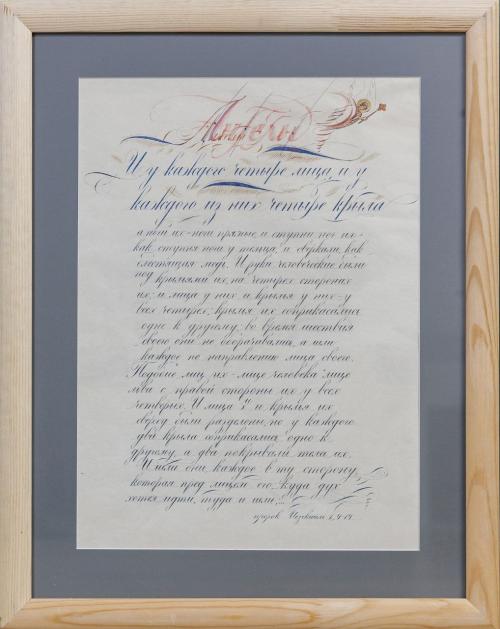 Ангелы
И у каждого четыре лица, и у
каждого из них четыре крыла
а ноги их - ноги прямые, и ступни ног их -
как ступня ноги у тельца, и сверкали, как
блестящая медь. И руки человеческие были
под крыльями их, на четырех сторонах
их; и лица у них и крылья у них - у
всех четырех; крылья их соприкасались
одно к другому; во время шествия
своего они не оборачивались, а шли
каждое по направлению лица своего.
Подобие лиц их - лице человека и лице
льва с правой стороны их у всех
четверых. И лица их и крылья их
сверху были разделены, но у каждого
два крыла соприкасались одно к
другому, а два покрывали тела их.
И шли они, каждое в ту сторону,
которая пред лицем его; куда дух
хотел идти, туда и шли;...
пророк Иезекииль 1,